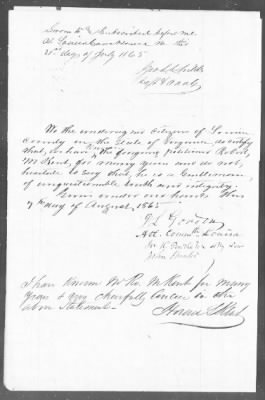 Sworn to & Subscribed before me
at Louisa Court House on the
21st day of July 1865
We the undersigned citizens of Louisa
County in the State of Virginia do certify
that, we have known the forgoing petitioner Robert
M Kent, for many years and do not
hesitate to say that, he is a Gentleman,
of unquestionable truth and integrity.
Given under our hands this
7th day of August, 1865
Att. Commth. Louisa
I have known Mr Ro. M Kent for many
years & very chearfully concur in the
above statement.